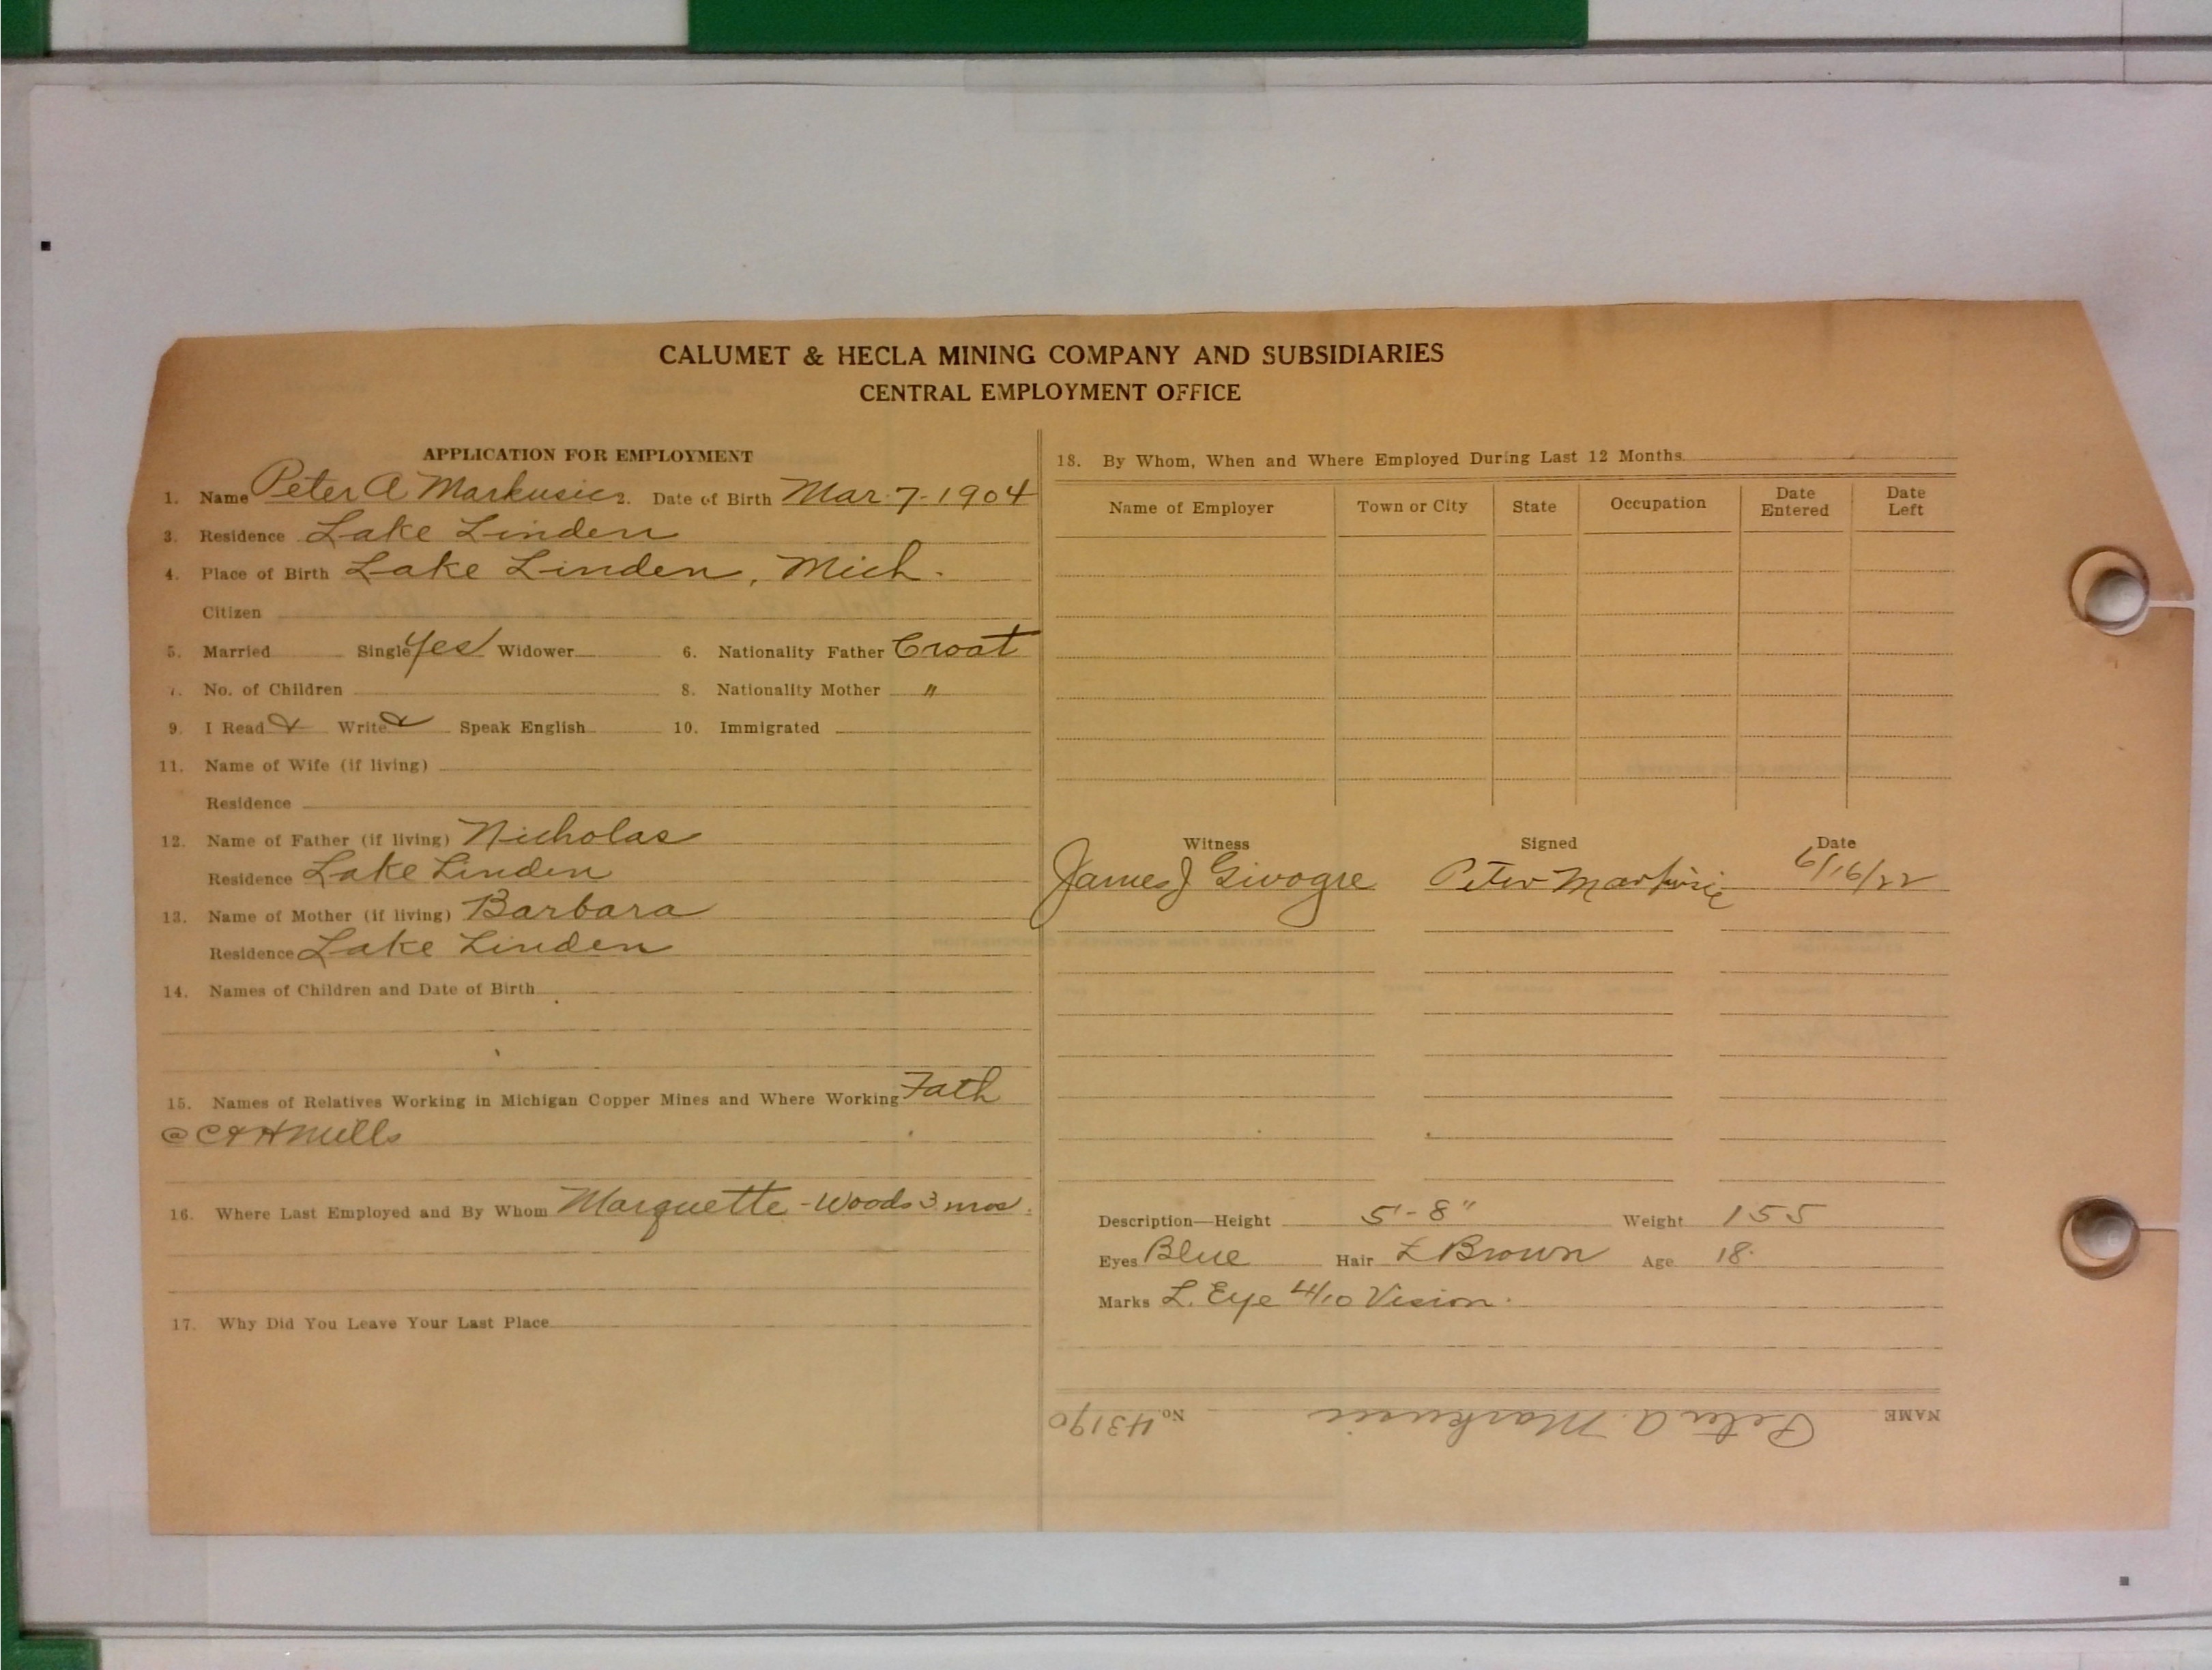 CALUMET & HECLA MINING COMPANY AND SUBSIDIARIES
CENTRAL EMPLOYMENT OFFICE
APPLICATION FOR EMPLOYMENT
1. Name Peter A Markusic 2. Date of Birth Mar. 7-1904
3. Residence Lake Linden
4. Place of Birth Lake Linden, Mich.
Citizen
5. Married Single Yes Widower 6. Nationality Father Croat
7. No. of Children 8. Nationality Mother "
9. I Read & Write & Speak English 10. Immigrated
11. Name of Wife (if living)
Residence
12. Name of Father (if living) Nicholas
Residence Lake Linden
13. Name of Mother (if living) Barbara
Residence Lake Linden
14. Names of Children and Date of Birth
15. Names of Relatives Working in Michigan Copper Mines and Where Working Fath
@ C & H Mills
16. Where Last Employed and By Whom Marquette - Woods 3 mos.
17. Why Did You Leave Your Last Place
18. By Whom, When and Where Employed During Last 12 Months
Name of Employer Town or City State Occupation Date Entered Date Left
Witness Signed Date
James J Givogre Peter Markusic 6/16/22
Description—Height 5'-8" Weight 155
Eyes Blue Hair L Brown Age 18
Marks L. Eye 4/10 Vision.
NAME Peter A. Markusic No. 43190